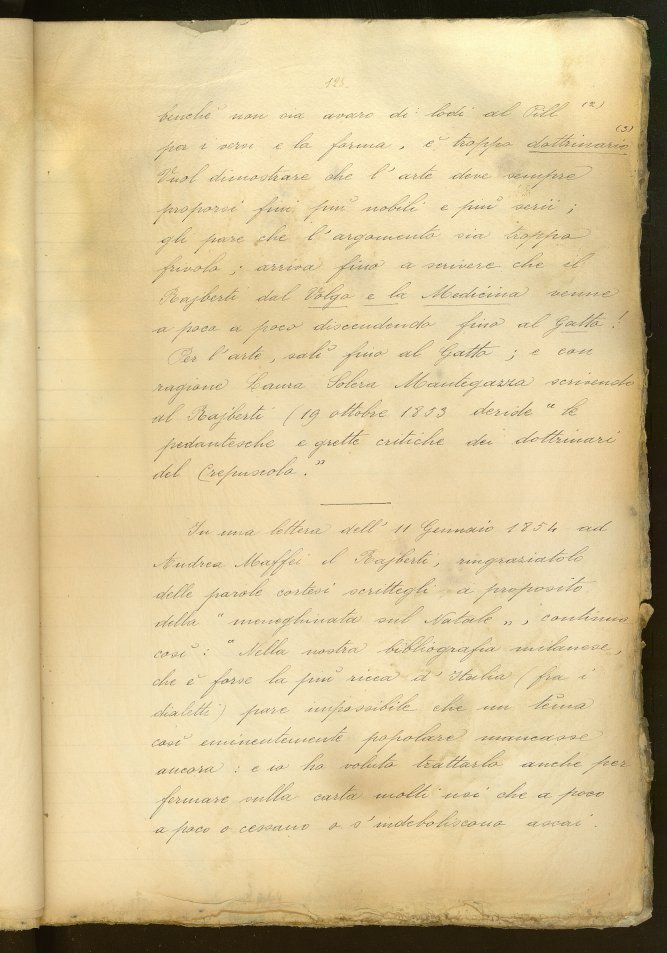 123.
benchè non sia avaro di lodi al Pill (2)
per i versi e la forma, è troppo dottrinario (3)
Vuol dimostrare che l'arte deve sempre
proporsi fini più nobili e più serii;
gli pare che l'argomento sia troppo
frivolo; arriva fino a scrivere che il
Rajberti dal Volgo e la Medicina venne
a poco a poco discendendo fino al Gatto!
Per l'arte, salì fino al Gatto; e con
ragione Laura Solera Mantegazza scrivendo
al Rajberti (19 ottobre 1853 deride "le
pedantesche e grette critiche dei dottrinari
del Crepuscolo."
In una lettera dell' 11 Gennaio 1854 ad
Andrea Maffei il Rajberti, ringraziatolo
delle parole cortesi scrittegli a proposito
della "meneghinata sul Natale", continua
così: "Nella nostra bibliografia milanese,
che è forse la più ricca d'Italia (fra i
dialetti) pare impossibile che un tema
così eminentemente popolare mancasse
ancora: e io ho voluto trattarlo anche per
fermare sulla carta molti usi che a poco
a poco o cessano o s'indeboliscono assai.